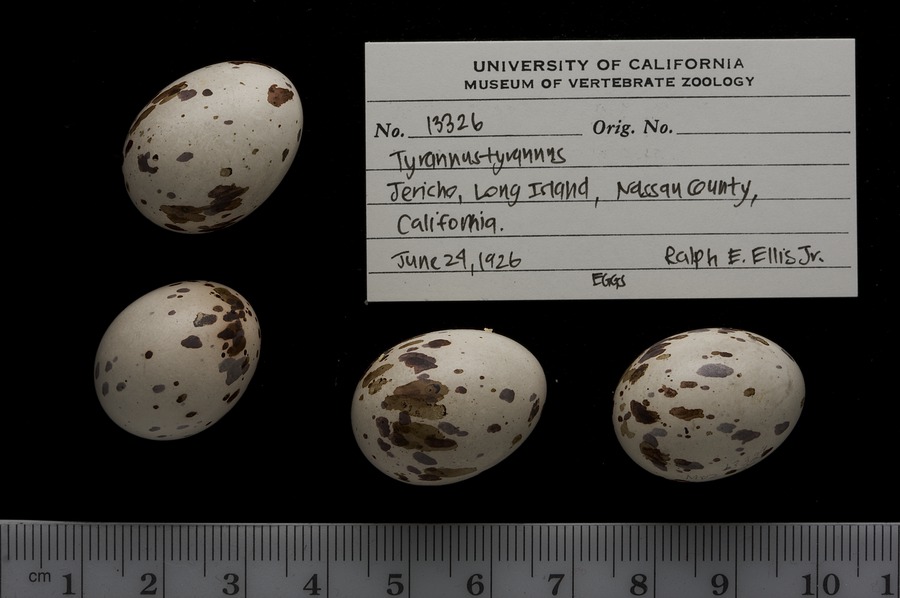 UNIVERSITY OF CALIFORNIA
MUSEUM OF VERTEBRATE ZOOLOGY
No. 13326 Orig. No.
Tyrannus tyrannus
Jericho, Long Island, Nassau County,
California.
June 24, 1926 Ralph E. Ellis Jr.
EGGS
cm 1 2 3 4 5 6 7 8 9 10 1